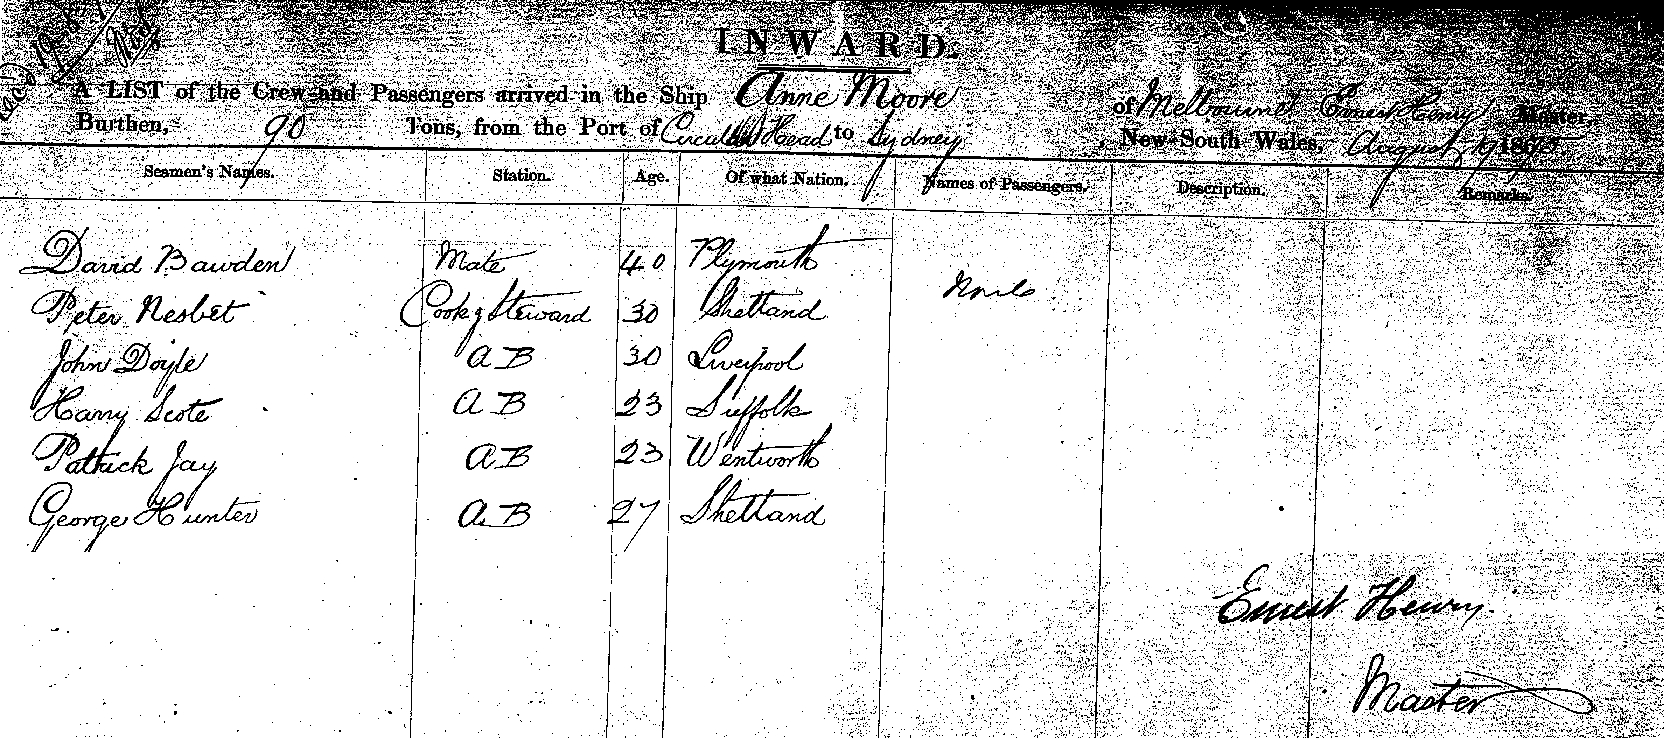 INWARD.
A LIST of the Crew and Passengers arrived in the Ship Anne Moore of Melbourne Ernest Henry Master,
Burthen, 90 Tons, from the Port of Circular Head to Sydney New South Wales, August
Seamen's Names. Station. Age. Of what Nation. Names of Passengers. Description. Remarks.
David Bawden Mate 40 Plymouth
Peter Nesbet Cook & Steward 30 Shetland None
John Doyle AB 30 Liverpool
Harry Scote AB 23 Suffolk
Patrick Jay AB 23 Wentworth
George Hunter AB 27 Shetland
Ernest Henry.
Master